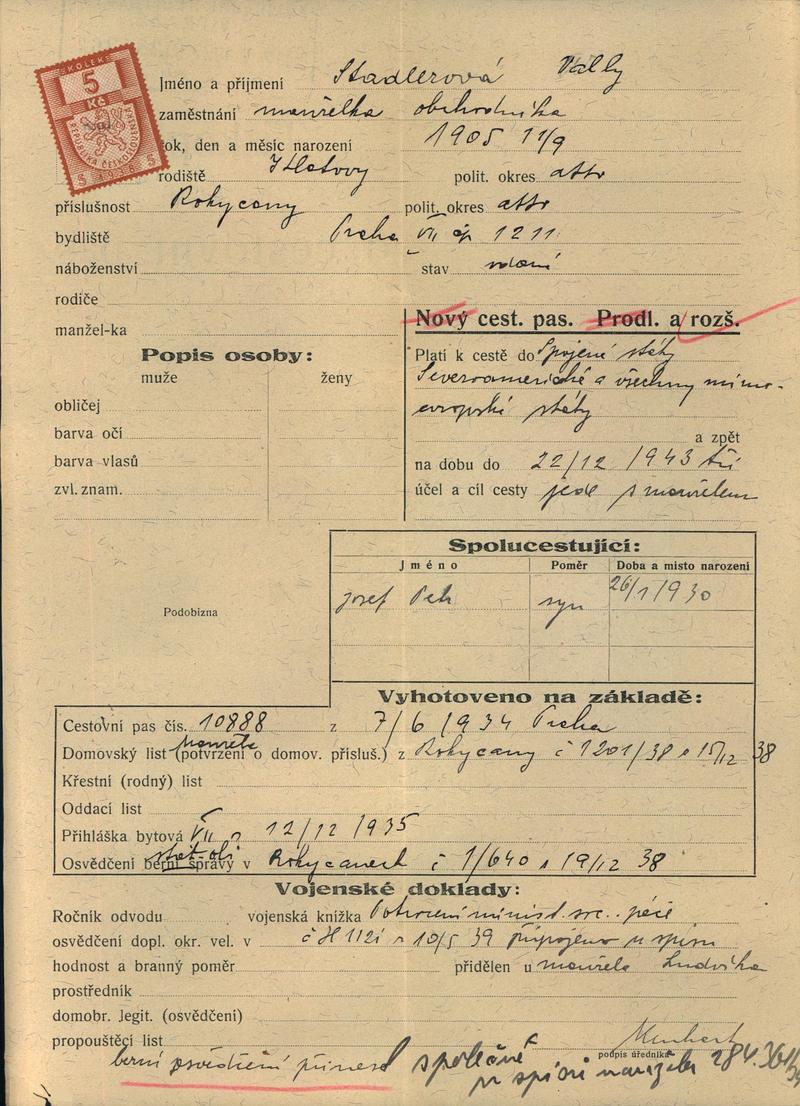 KOLEK
5
Kč
REPUBLIKA ČESKOSLOVENSKÁ
5 1938 5
Jméno a příjmení Stadlerová Vally
zaměstnání manželka obchodníka
rok, den a měsíc narození 1905 11/9
rodiště polit. okres attr
příslušnost Rokycany polit. okres attr
bydliště Praha VII čp 1211
náboženství stav vdaná
rodiče
manžel-ka
Nový cest. pas. Prodl. a rozš.
Popis osoby:
muže ženy
obličej
barva očí
barva vlasů
zvl. znam.
Platí k cestě do Spojené státy
Severoamerické a všechny mimo-
evropské státy
a zpět
na dobu do 22/12 1943 tří
účel a cíl cesty jede s manželem
Spolucestující:
Jméno Poměr Doba a místo narození
Josef Petr syn 26/1 1930
Podobizna
Vyhotoveno na základě:
Cestovní pas čís. 10888 z 7/6 1934 Praha
manžela
Domovský list (potvrzení o domov. přísluš.) z Rokycany č 1201/38 15/12 38
Křestní (rodný) list
Oddací list
Přihláška bytová VII 12/12 1935
Osvědčení berní správy v Rokycanech č 1/640 19/12 38
Vojenské doklady:
Ročník odvodu vojenská knížka Potvrzení minist. soc. péče
osvědčení dopl. okr. vel. v 10/5 39 připojeno u spisu
hodnost a branný poměr přidělen u manžela Ludvíka
prostředník
domobr. legit. (osvědčení)
propouštěcí list
podpis úředníka
berní osvědčení přinesl společně